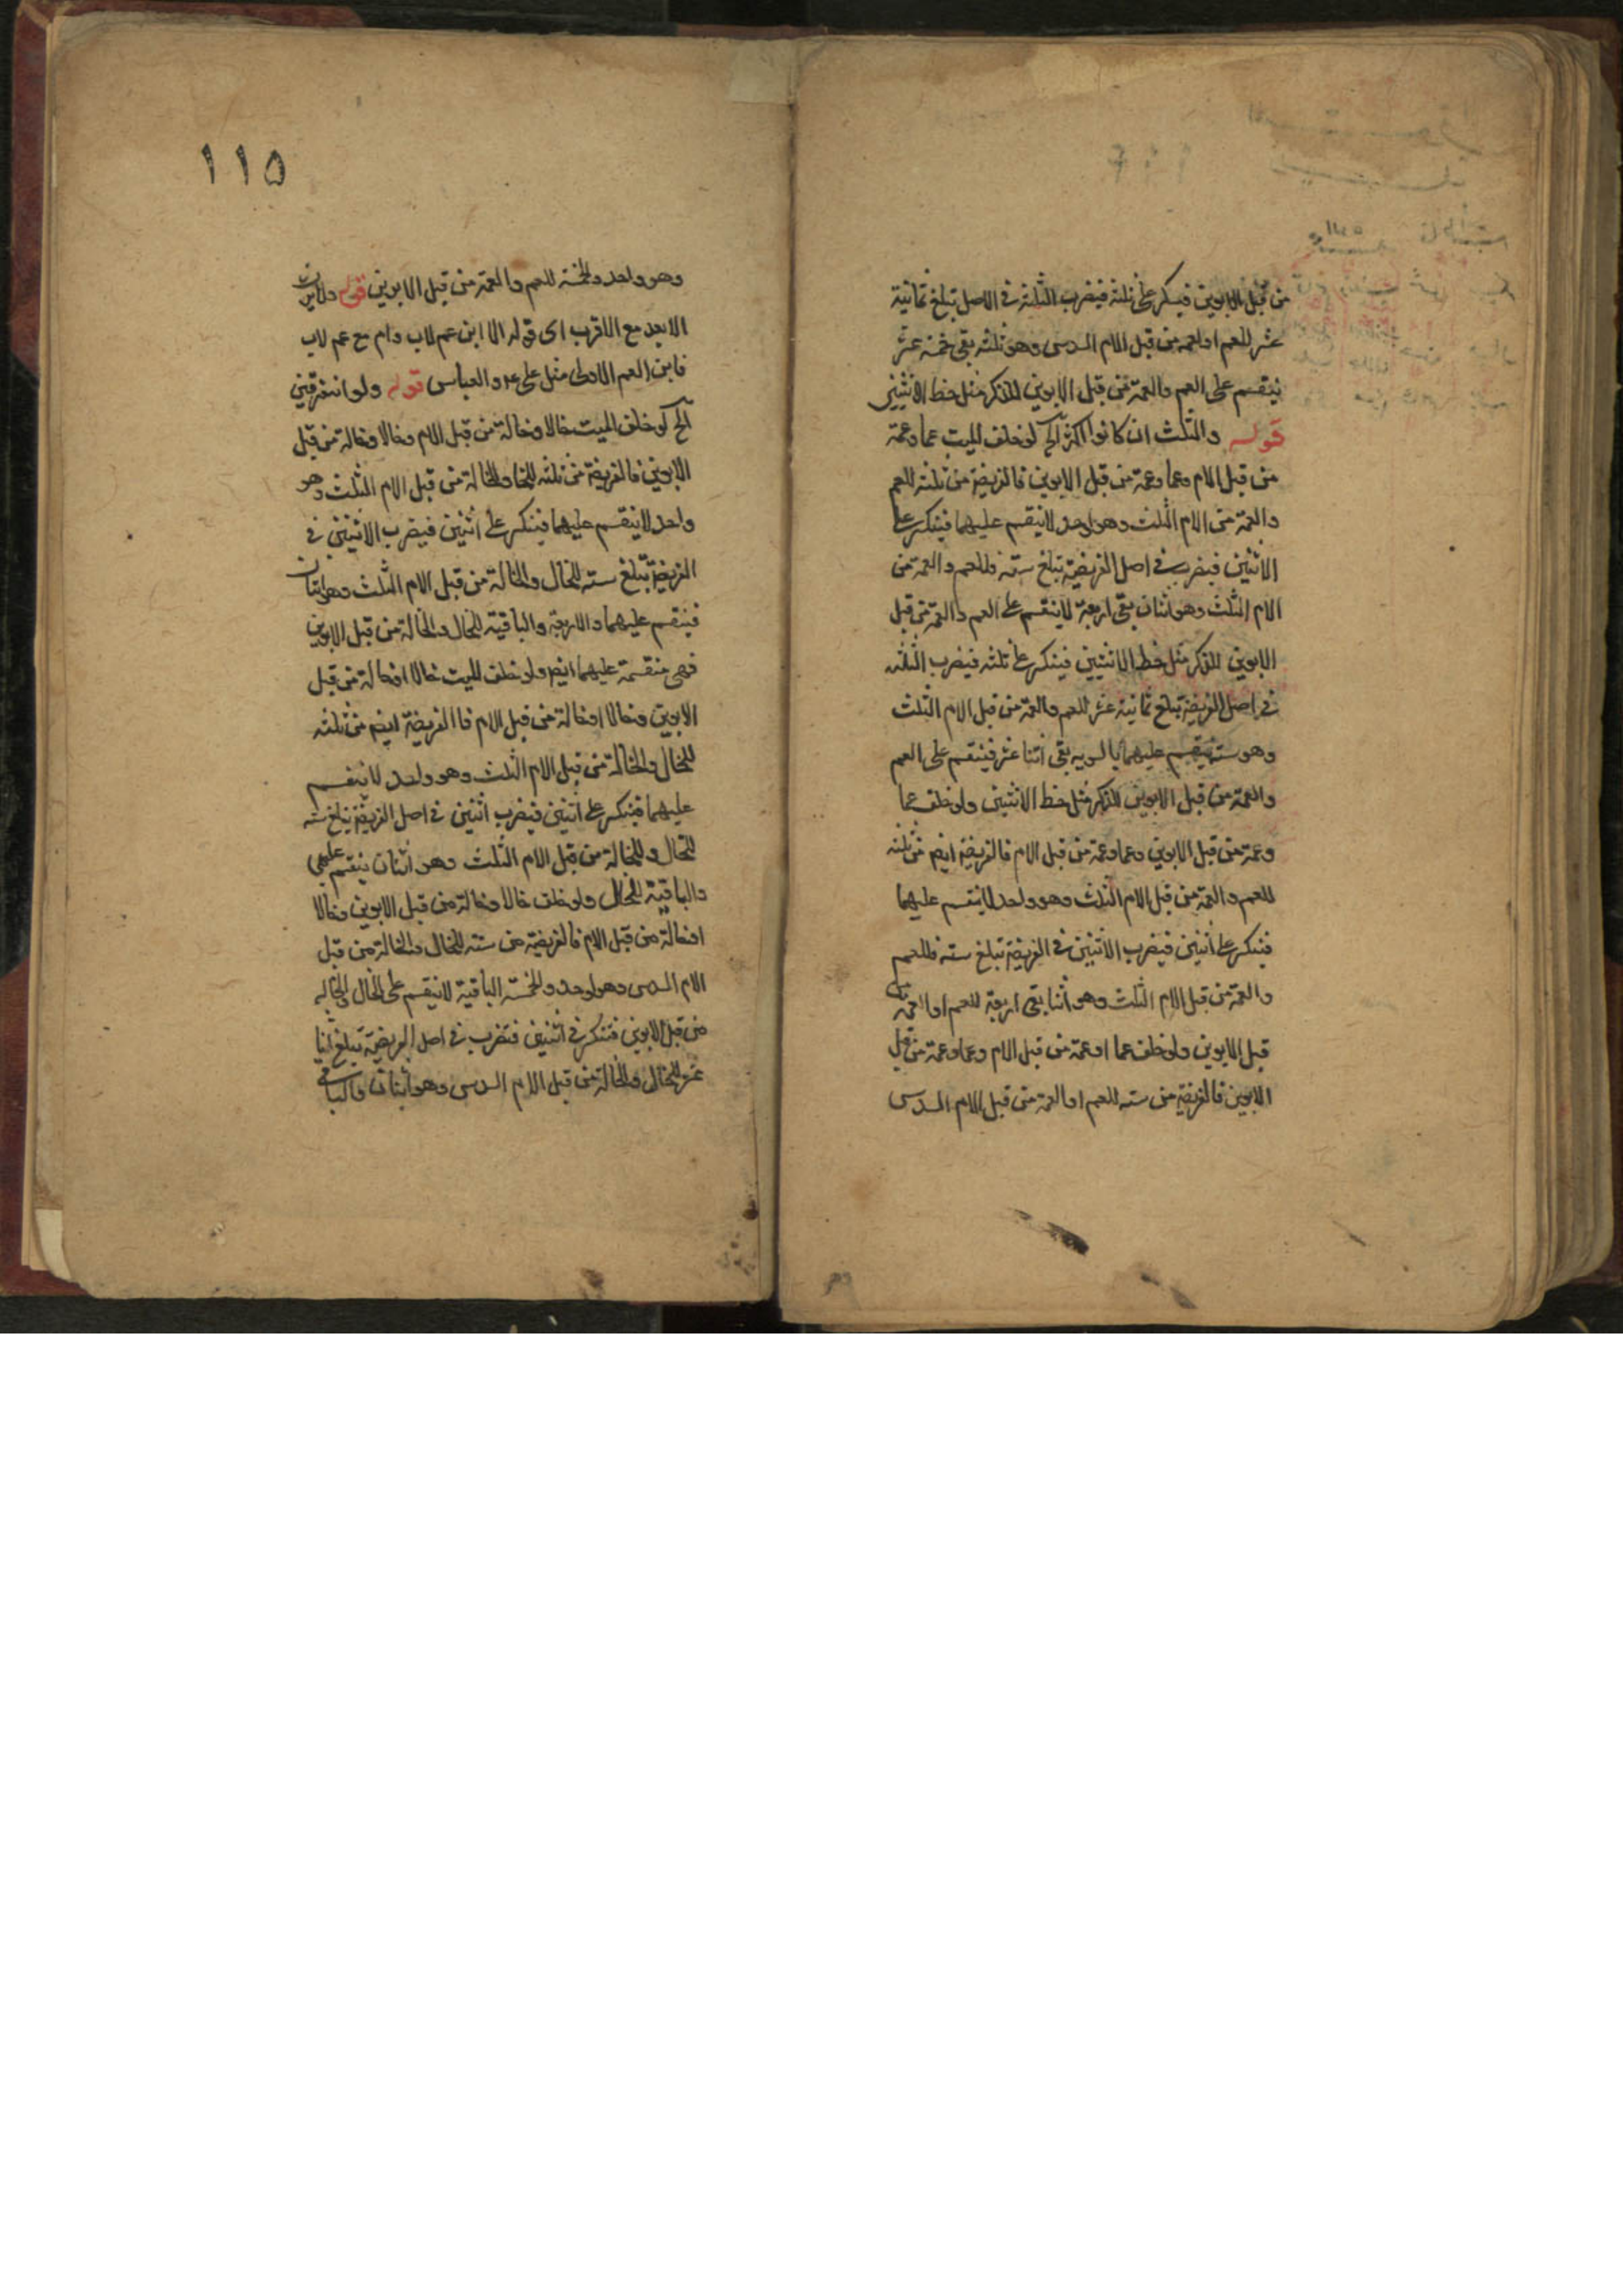 من قبل الابوين فينكسر على ثلثة فيضرب الثلثة في الاصل تبلغ ثمانية
عشر للعم او العمة من قبل الام السدس وهو ثلثة بقى خمسة عشر
ينقسم على العم والعمة من قبل الابوين للذكر مثل حظ الانثيين
قوله والثلث ان كانوا اكثر آلخ لو خلف الميت عما وعمة
من قبل الام وعما وعمة من قبل الابوين فالفريضة من ثلثة للعم
والعمة من الام الثلث وهو واحد لا ينقسم عليهما فينكسر على
الاثنين فيضرب في اصل الفريضة تبلغ ستة فللعم والعمة من
الام الثلث وهو اثنان بقى اربعة لا ينقسم على العم والعمة من قبل
الابوين للذكر مثل حظ الانثيين فينكسر على ثلثه فيضرب الثلثه
في اصل الفريضة تبلغ ثمانية عشر للعم والعمة من قبل الام الثلث
وهو ستة ينقسم عليهما بالسويه بقى اثنا عشر فينقسم على العم
والعمة من قبل الابوين للذكر مثل حظ الانثيين ولو خلف عما
وعمة من قبل الابوين وعما وعمة من قبل الام فالفريضة ايضم من ثلثه
للعم والعمة من قبل الام الثلث وهو واحد لا ينقسم عليهما
فينكسر على اثنين فيضرب الاثنين في الفريضة تبلغ ستة فللعم
والعمة من قبل الام الثلث وهو اثنا بقى اربعة للعم او العمة من
قبل الابوين ولو خلف عما او عمة من قبل الام وعما وعمة من قبل
الابوين فالفريضة من ستة للعم او العمة من قبل الام السدس
١١٥
وهو واحد والخمسة للعم والعمة من قبل الابوين قوله ولا يرث
الابعد مع الاقرب اى قوله الا ابن عم لاب وام مع عم لاب
فابن العم الاولى مثل على ع والعباس قوله ولو انفرقين
آلخ لو خلف الميت خالا وخالة من قبل الام وخالا وخالة من قبل
الابوين فالفريضة من ثلثه للخال والخالة من قبل الام الثلث وهو
واحد لا ينقسم عليهما فينكسر على اثنين فيضرب الاثنين في
الفريضة تبلغ ستة للخال والخالة من قبل الام الثلث وهو اثنان
فينقسم عليهما والاربعة والباقية للخال والخالة من قبل الابوين
فهى منقسمة عليهما ايضم ولو خلف الميت خالا او خالة من قبل
الابوين وخالا او خالة من قبل الام فاالفريضة ايضم من ثلثه
للخال والخالة من قبل الام الثلث وهو واحد لا ينقسم
عليهما فينكسر على اثنين فيضرب اثنين في اصل الفريضة تبلغ ستة
للخال وللخالة من قبل الام الثلث وهو اثنان ينقسم عليهما
والباقية للخال ولو خلف خالا وخالة من قبل الابوين وخالا
او خالة من قبل الام فالفريضة من ستة للخال والخالة من قبل
الام السدس وهو واحد والخمسة الباقية لا ينقسم على الخال والخاله
من قبل الابوين فتنكسر في اثنين فتضرب في اصل الفريضة تبلغ اثنا
عشر للخال والخالة من قبل الام السدس وهو اثنان والباقى